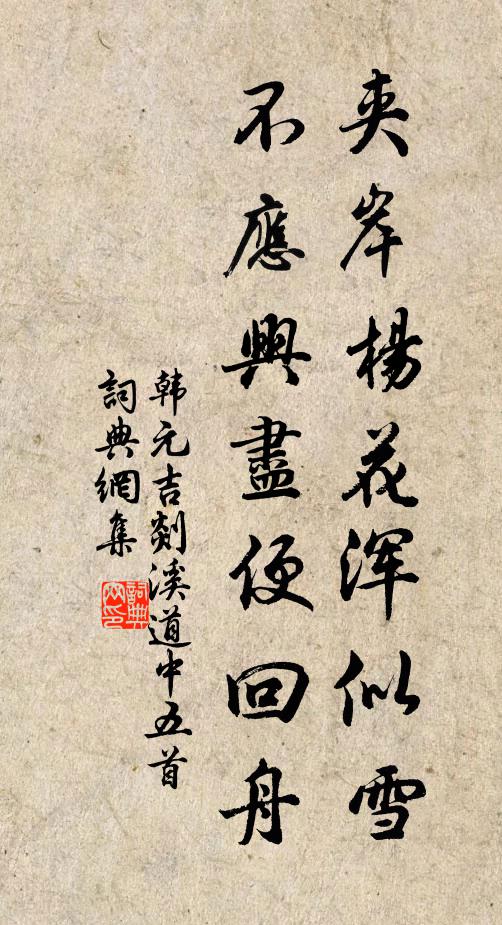 夹岸楊花浑似雪
不應興盡便回舟
韩元吉剡溪道中五首
詞典網集
詞典